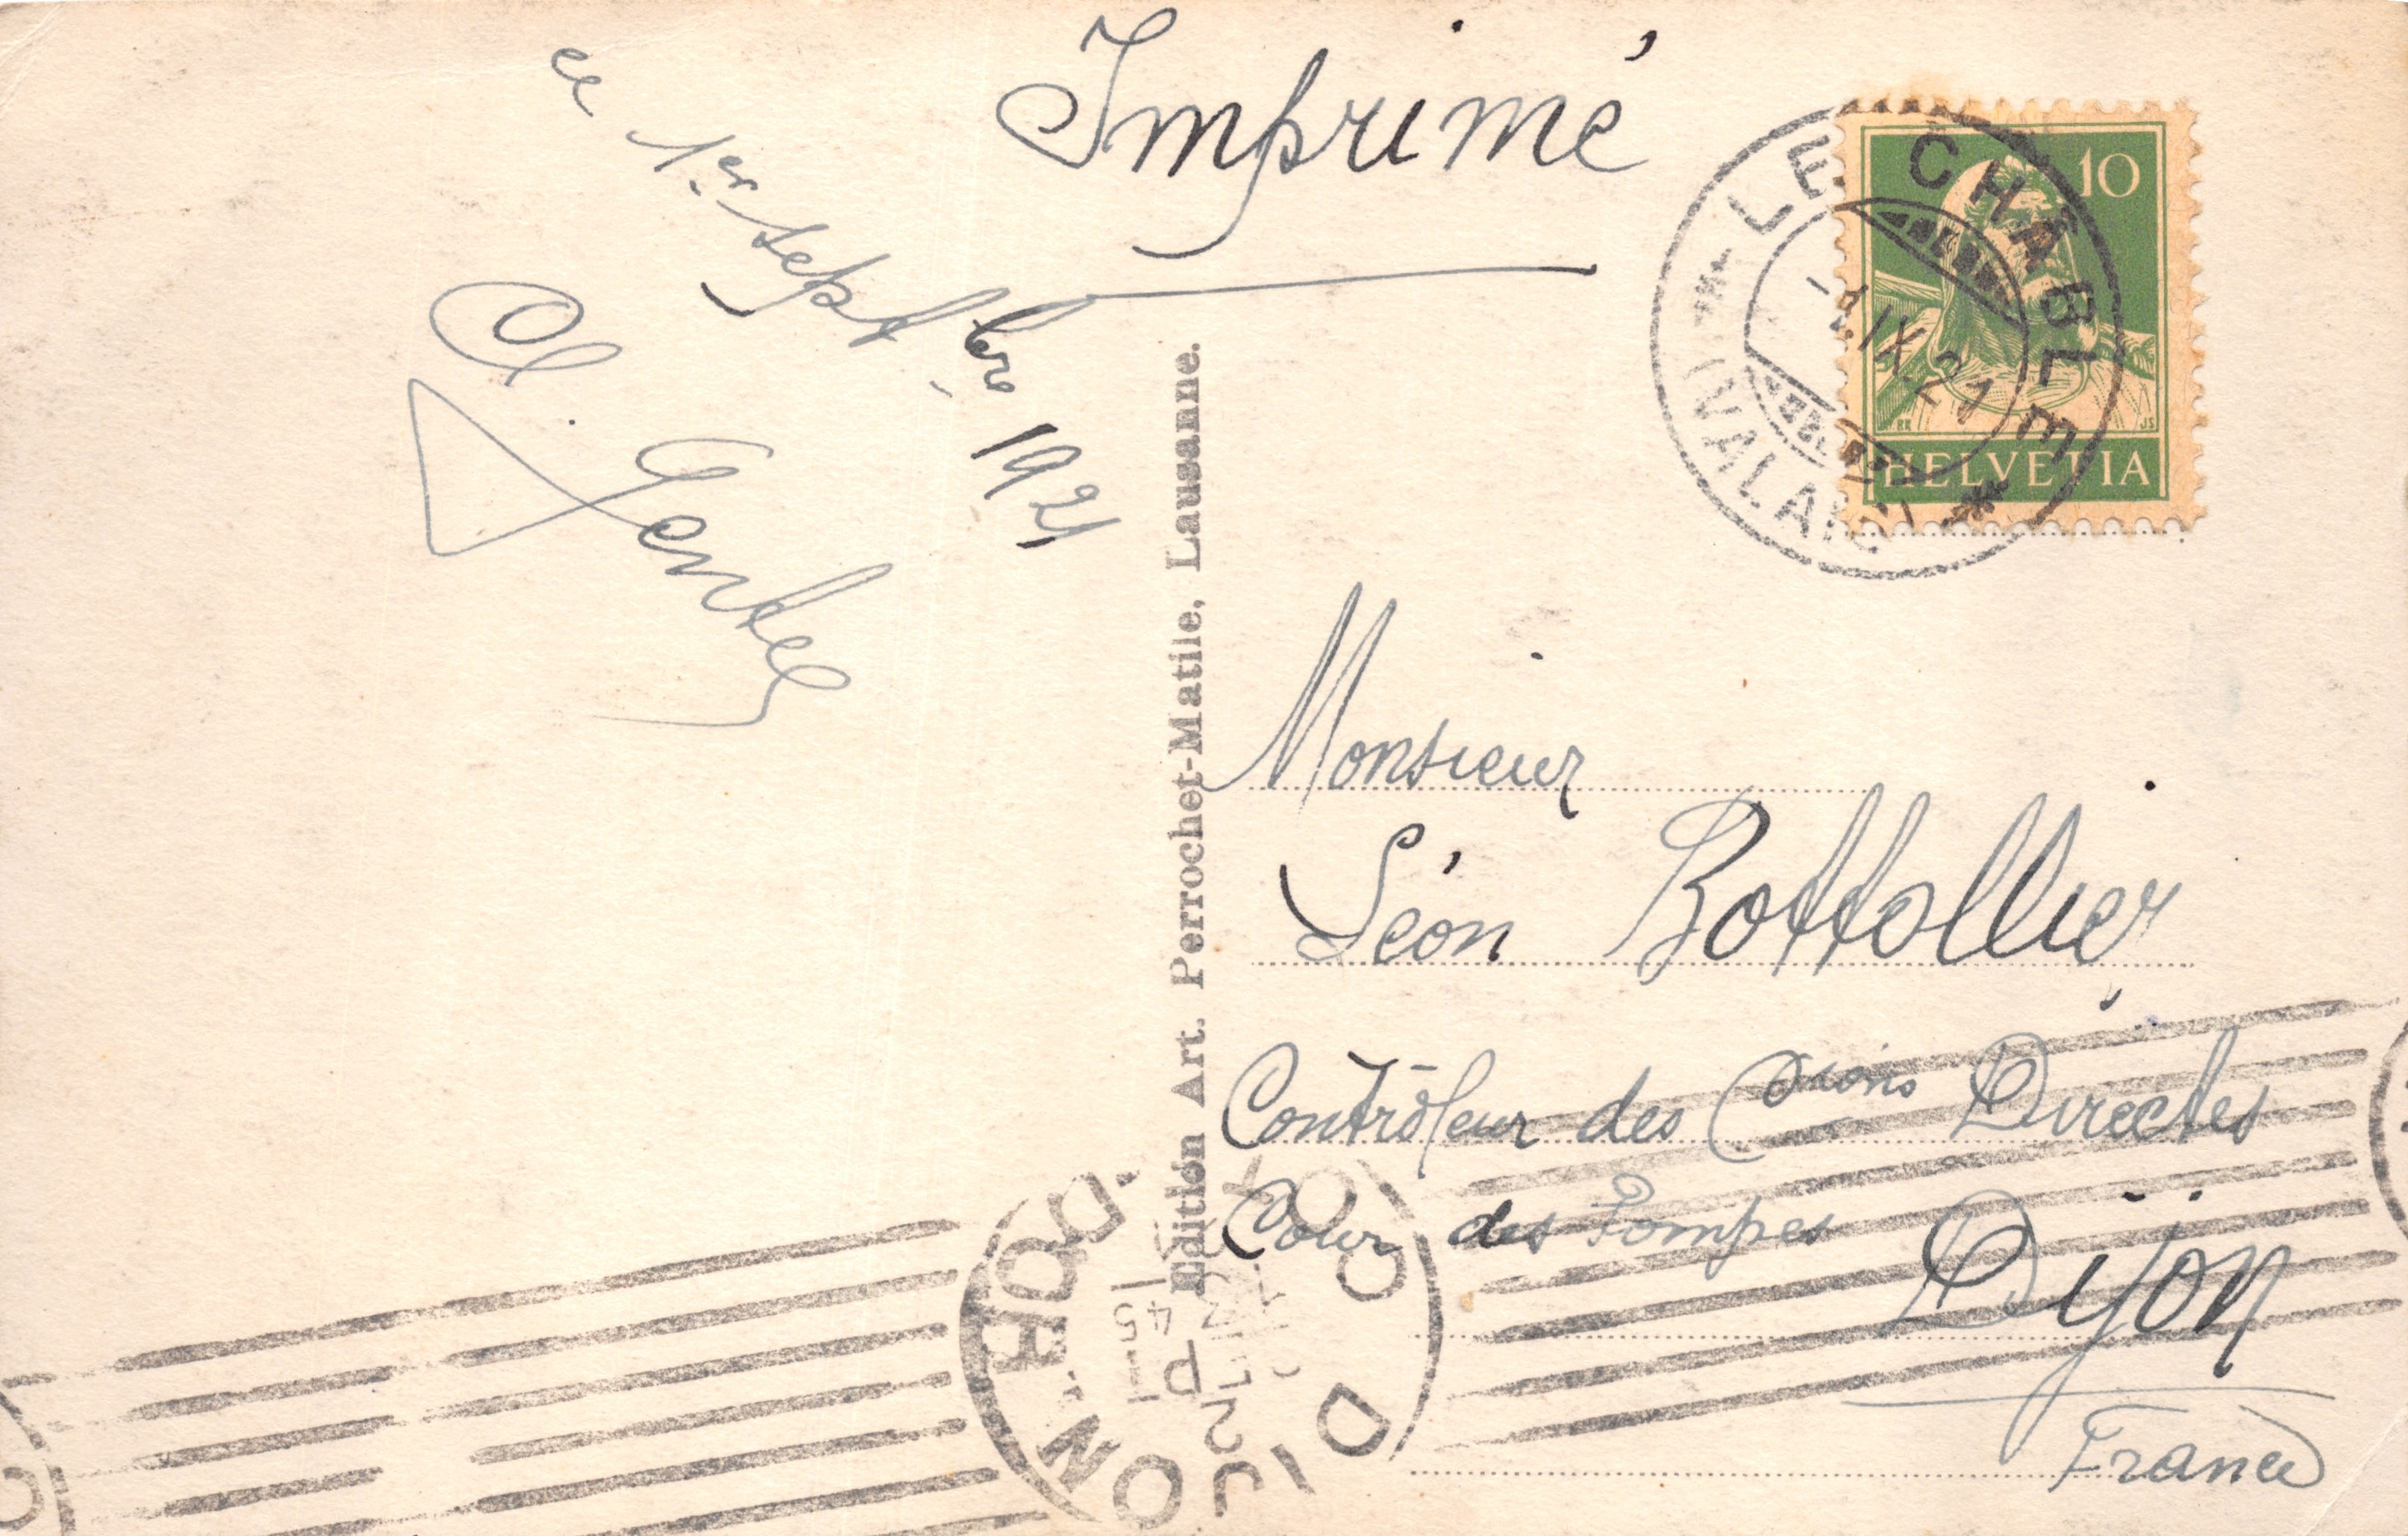 Imprimé
ce 1er septbre 1921
Ch. Gentil
Edition Art. Perrochet-Matile, Lausanne.
LE CHÂBLE
(VALAIS)
-1.IX.21
10
HELVETIA
Monsieur
Léon Bottollier
Contrôleur des Cions Directes
Cour des Pompes
Dijon
France
DIJON
CÔTE D'OR